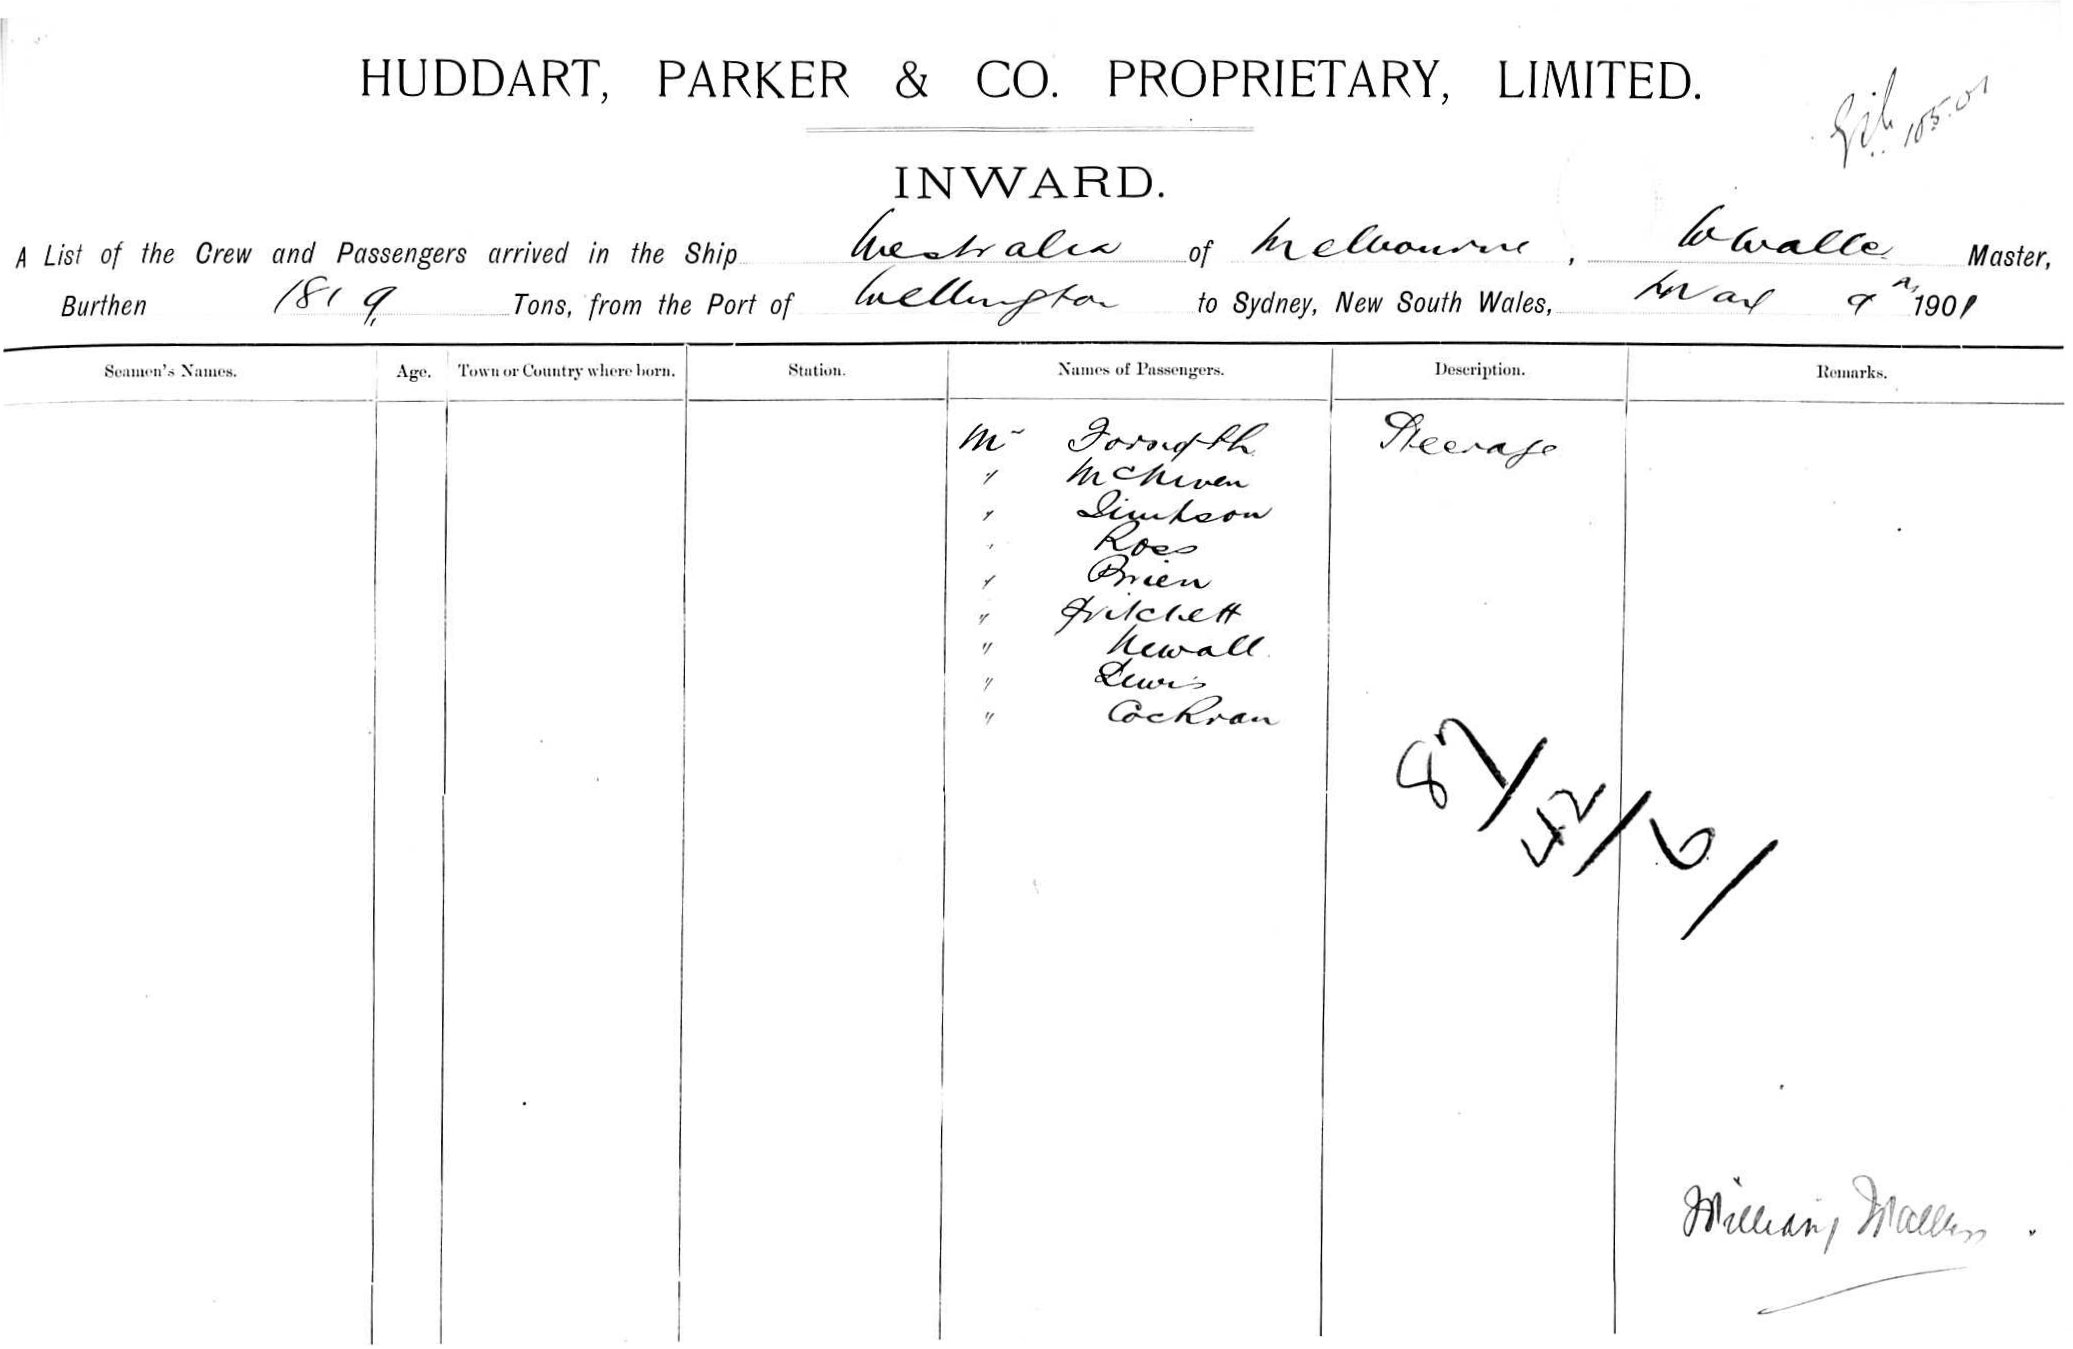 HUDDART, PARKER & CO. PROPRIETARY, LIMITED.
10 5. 01
INWARD.
A List of the Crew and Passengers arrived in the Ship Westralia of Melbourne, Master,
Burthen 1819 Tons, from the Port of Wellington to Sydney, New South Wales, May 9th 1901
Seamen's Names. Age. Town or Country where born. Station. Names of Passengers. Description. Remarks.
Mr Forsyth Steerage
" McNiven
" Simpson
" Ross
" Brien
" Pritchett
" Newall
" Lewis
" Cockran
87/42/6/
William